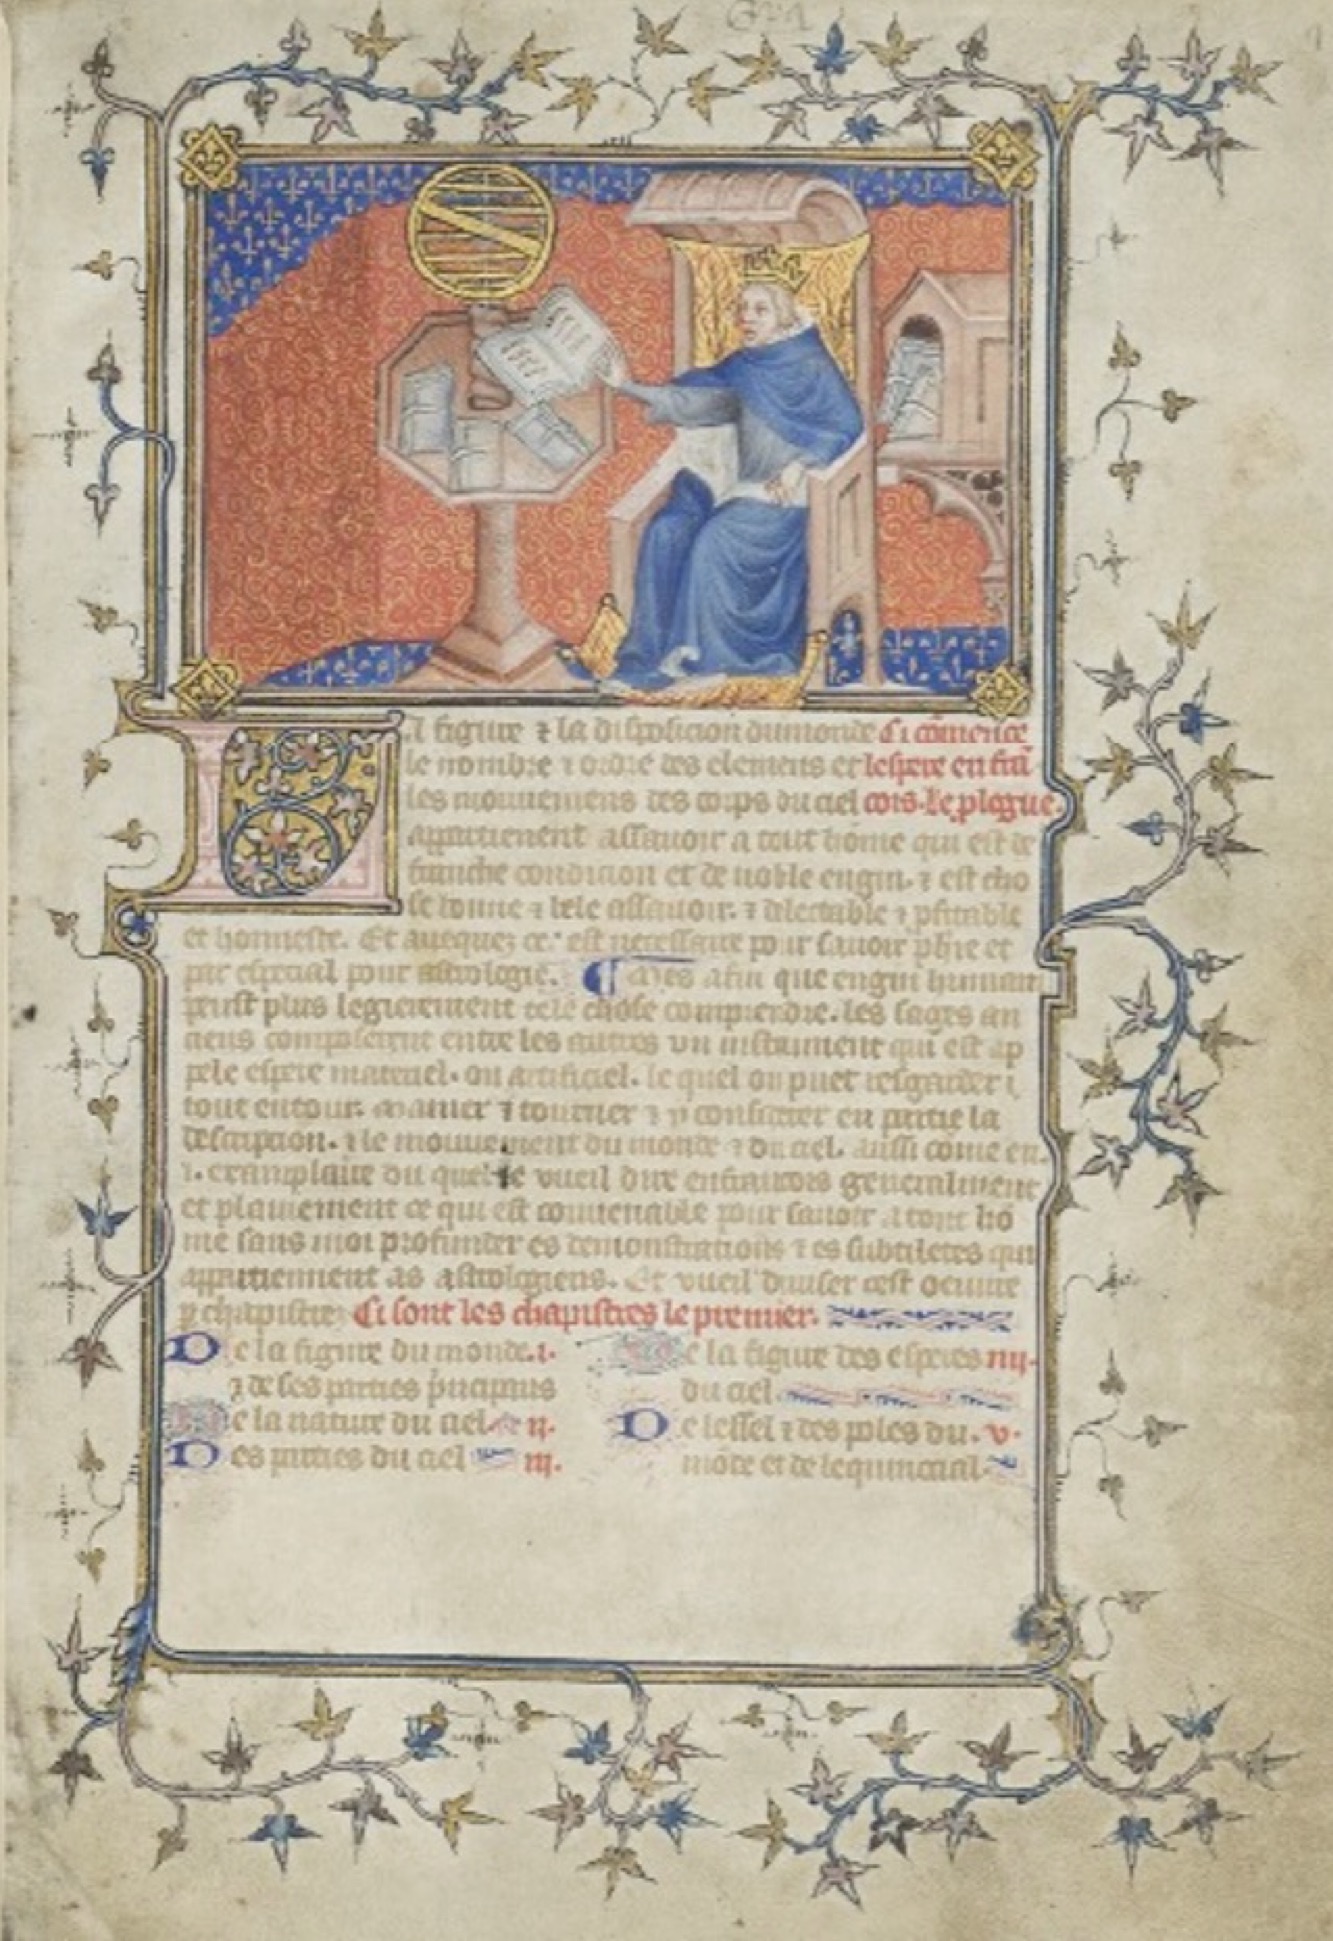 La figure ⁊ la disposicion du monde Ci cōmence
le nombre ⁊ ordre des elemens et lespere en frā
les mouuemens des corps du ciel cois. le plogue.
appartienent assauoir a tout home qui est de
franche condicion et de noble engin. ⁊ est cho
se bonne ⁊ bele assauoir. ⁊ delectable ⁊ pfitable
et honneste. Et auequez ce est necessaire pour sauoir phie et
par especial pour astrologie. ¶ Mes afin que engin humain
peust plus legierement tele chose comprendre. les sages an
ciens composerent entre les autres vn instrument qui est ap
pele espere materiel. ou artificiel. le quel on puet resgarder
tout entour. manier ⁊ tourner ⁊ y considerer en partie la
descripcion. ⁊ le mouuement du monde ⁊ du ciel. aussi come en
.i. examplaire du quel ie vueil dire en francois generalment
et plainement ce qui est conuenable pour sauoir a tout hō
me sans moi profunder es demonstracions ⁊ es subtiletes qui
appartiennent as astrologiens. Et vueil diuiser cest oeuure
p chapistres Ci sont les chapistres le premier.
De la figure du monde .i.
⁊ de ses parties principaus
De la nature du ciel ii.
Des parties du ciel iii.
De la figure des esperes iiij.
du ciel.
De lessel ⁊ des poles du .v.
mōde et de lequinccial.